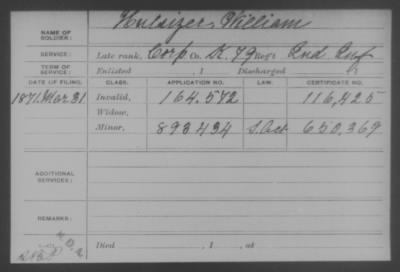 NAME OF SOLDIER: Hulsizer, William
SERVICE: Late rank, Corp Co. K, 79 Reg't Ind Inf
TERM OF SERVICE: Enlisted , 1 Discharged , 1
DATE OF FILING. CLASS. APPLICATION NO. LAW. CERTIFICATE NO.
1871 Mar 31 Invalid, 164.572 116,425
Widow,
Minor, 893434 S. Act 650,369
ADDITIONAL SERVICES:
REMARKS:
Died , 1 , at